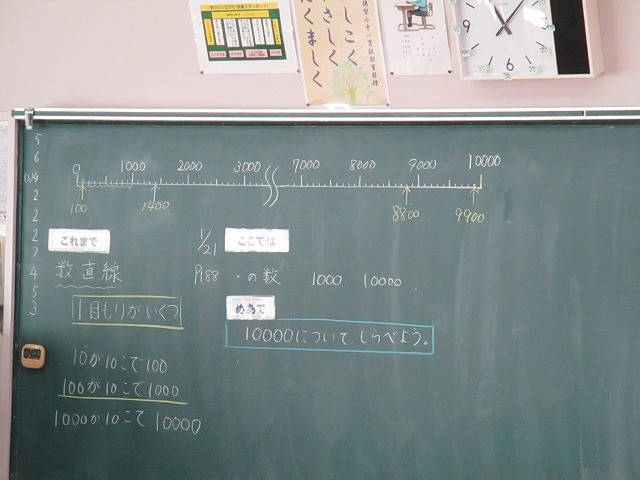 しこく
さしく
くましく
携型小中一貫校教育目標
0 1000 2000 3000 7000 8000 9000 10000
100 1400 8800 9900
5
6
4
2
2
2
2
4
5
3
これまで
数直線
1目もりがいくつ
10が10こで100
100が10こで1000
1000が10こで10000
1/21 ここでは
P188 ・の数 1000 10000
めあて
10000について、しらべよう。